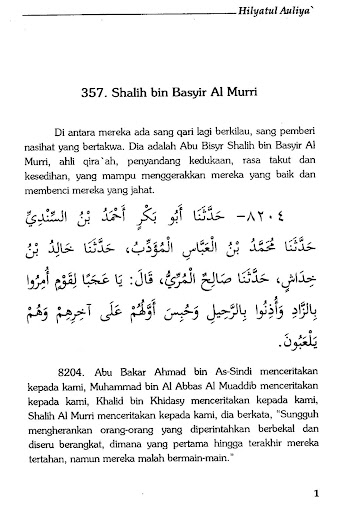 Hilyatul Auliya`
357. Shalih bin Basyir Al Murri
Di antara mereka ada sang qari lagi berkilau, sang pemberi
nasihat yang bertakwa. Dia adalah Abu Bisyr Shalih bin Basyir Al
Murri, ahli qira`ah, penyandang kedukaan, rasa takut dan
kesedihan, yang mampu menggerakkan mereka yang baik dan
membenci mereka yang jahat.
٨٢٠٤- حَدَّثَنَا أَبُو بَكْرٍ أَحْمَدُ بْنُ السِّنْدِيِّ
حَدَّثَنَا مُحَمَّدُ بْنُ الْعَبَّاسِ الْمُؤَدِّبُ، حَدَّثَنَا خَالِدُ بْنُ
خِدَاشٍ، حَدَّثَنَا صَالِحٌ الْمُرِّيُّ، قَالَ: يَا عَجَبًا لِقَوْمٍ أُمِرُوا
بِالزَّادِ وَأُذِنُوا بِالرَّحِيلِ وَحُبِسَ أَوَّلُهُمْ عَلَى آخِرِهِمْ وَهُمْ
يَلْعَبُونَ.
8204. Abu Bakar Ahmad bin As-Sindi menceritakan
kepada kami, Muhammad bin Al Abbas Al Muaddib menceritakan
kepada kami, Khalid bin Khidasy menceritakan kepada kami,
Shalih Al Murri menceritakan kepada kami, dia berkata, "Sungguh
mengherankan orang-orang yang diperintahkan berbekal dan
diseru berangkat, dimana yang pertama hingga terakhir mereka
tertahan, namun mereka malah bermain-main."
1